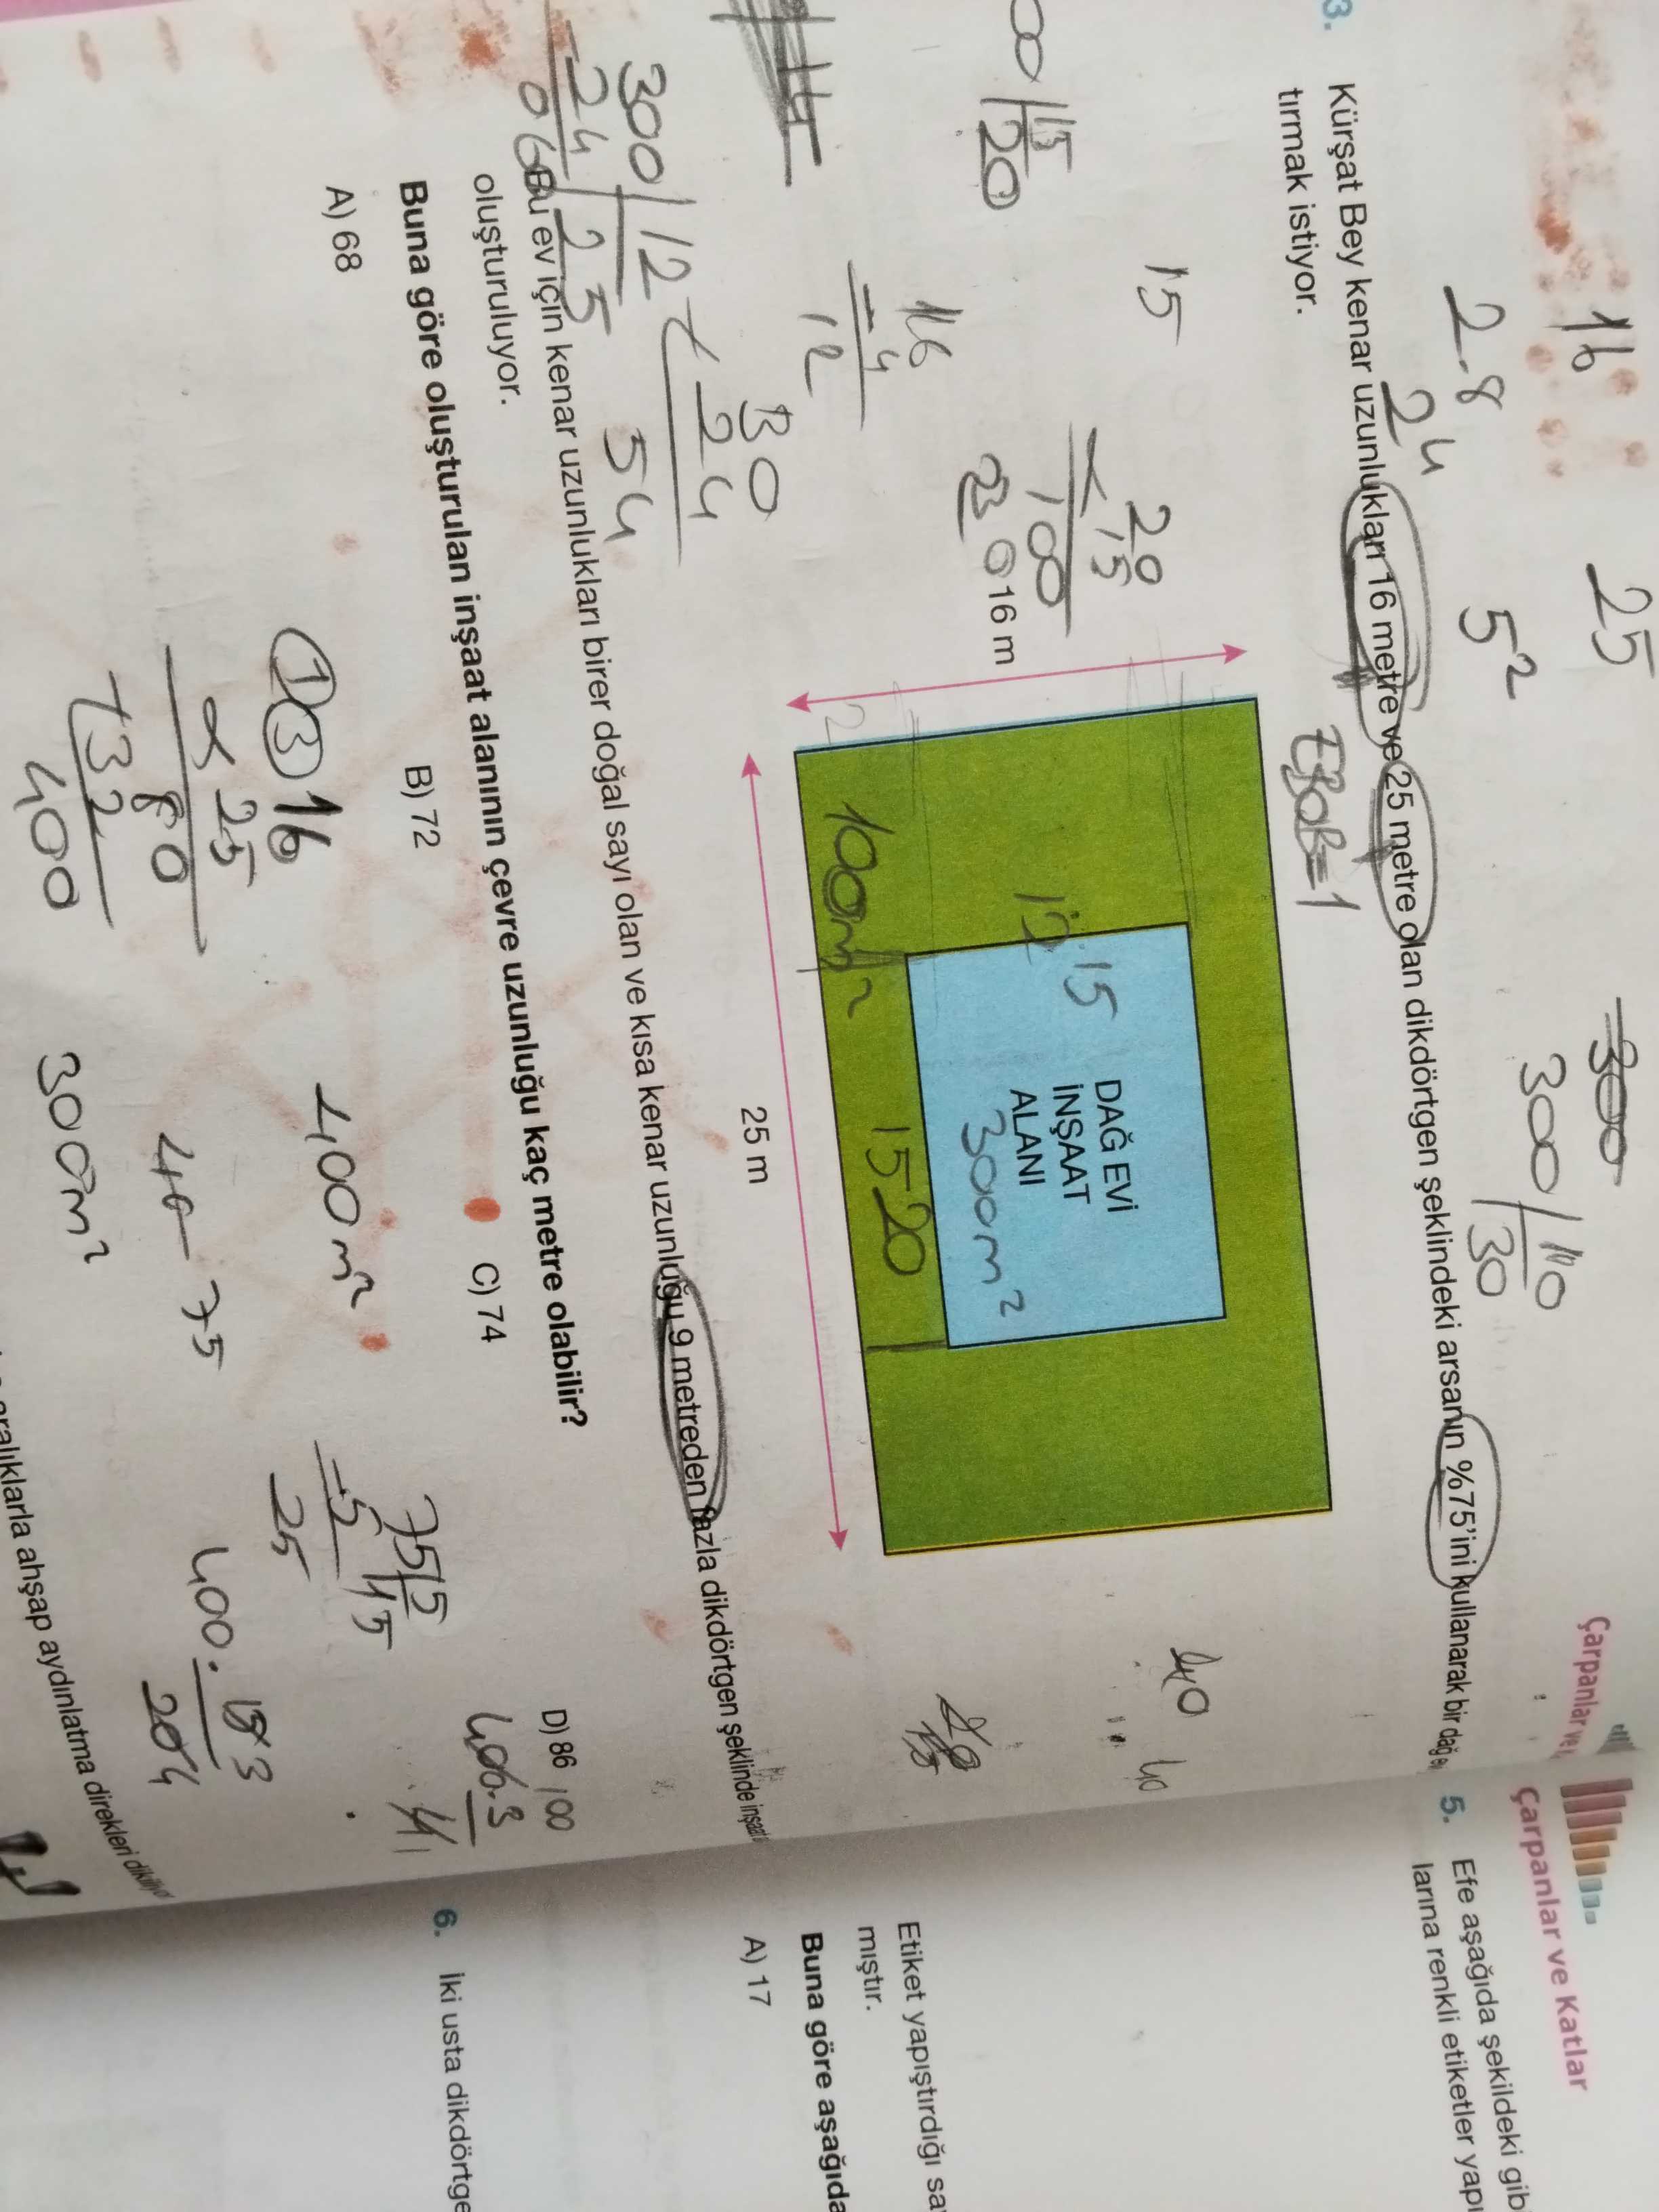 Çarpanlar ve
3. Kürşat Bey kenar uzunlukları 16 metre ve 25 metre olan dikdörtgen şeklindeki arsanın %75'ini kullanarak bir dağ
tırmak istiyor.
16 m
DAĞ EVİ
İNŞAAT
ALANI
25 m
Bu ev için kenar uzunlukları birer doğal sayı olan ve kısa kenar uzunluğu 9 metreden fazla dikdörtgen şeklinde inşaat
oluşturuluyor.
Buna göre oluşturulan inşaat alanının çevre uzunluğu kaç metre olabilir?
A) 68 B) 72 C) 74 D) 86
aralıklarla ahşap aydınlatma direkleri
16
25
2.8
2 4
5²
300
300 | 10
30
EBOB=1
15
15
20
20
x 15
100
16
- 4
12
300 | 12
- 24 | 25
06
30
+ 24
54
2
100m²
12
15
300m²
15 20
40
40
13 16
x 25
80
+ 32
400
400m²
300m²
75 | 5
-5 | 15
25
400.
100
Çarpanlar ve Katlar
5. Efe aşağıda şekildeki gib
larına renkli etiketler yapı
Etiket yapıştırdığı sa
mıştır.
Buna göre aşağıda
A) 17
6. İki usta dikdörtge